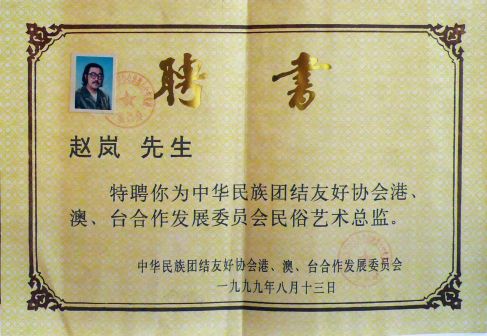 聘书
赵岚 先生
特聘你为中华民族团结友好协会港、
澳、台合作发展委员会民俗艺术总监。
中华民族团结友好协会港、澳、台合作发展委员会
一九九九年八月十三日